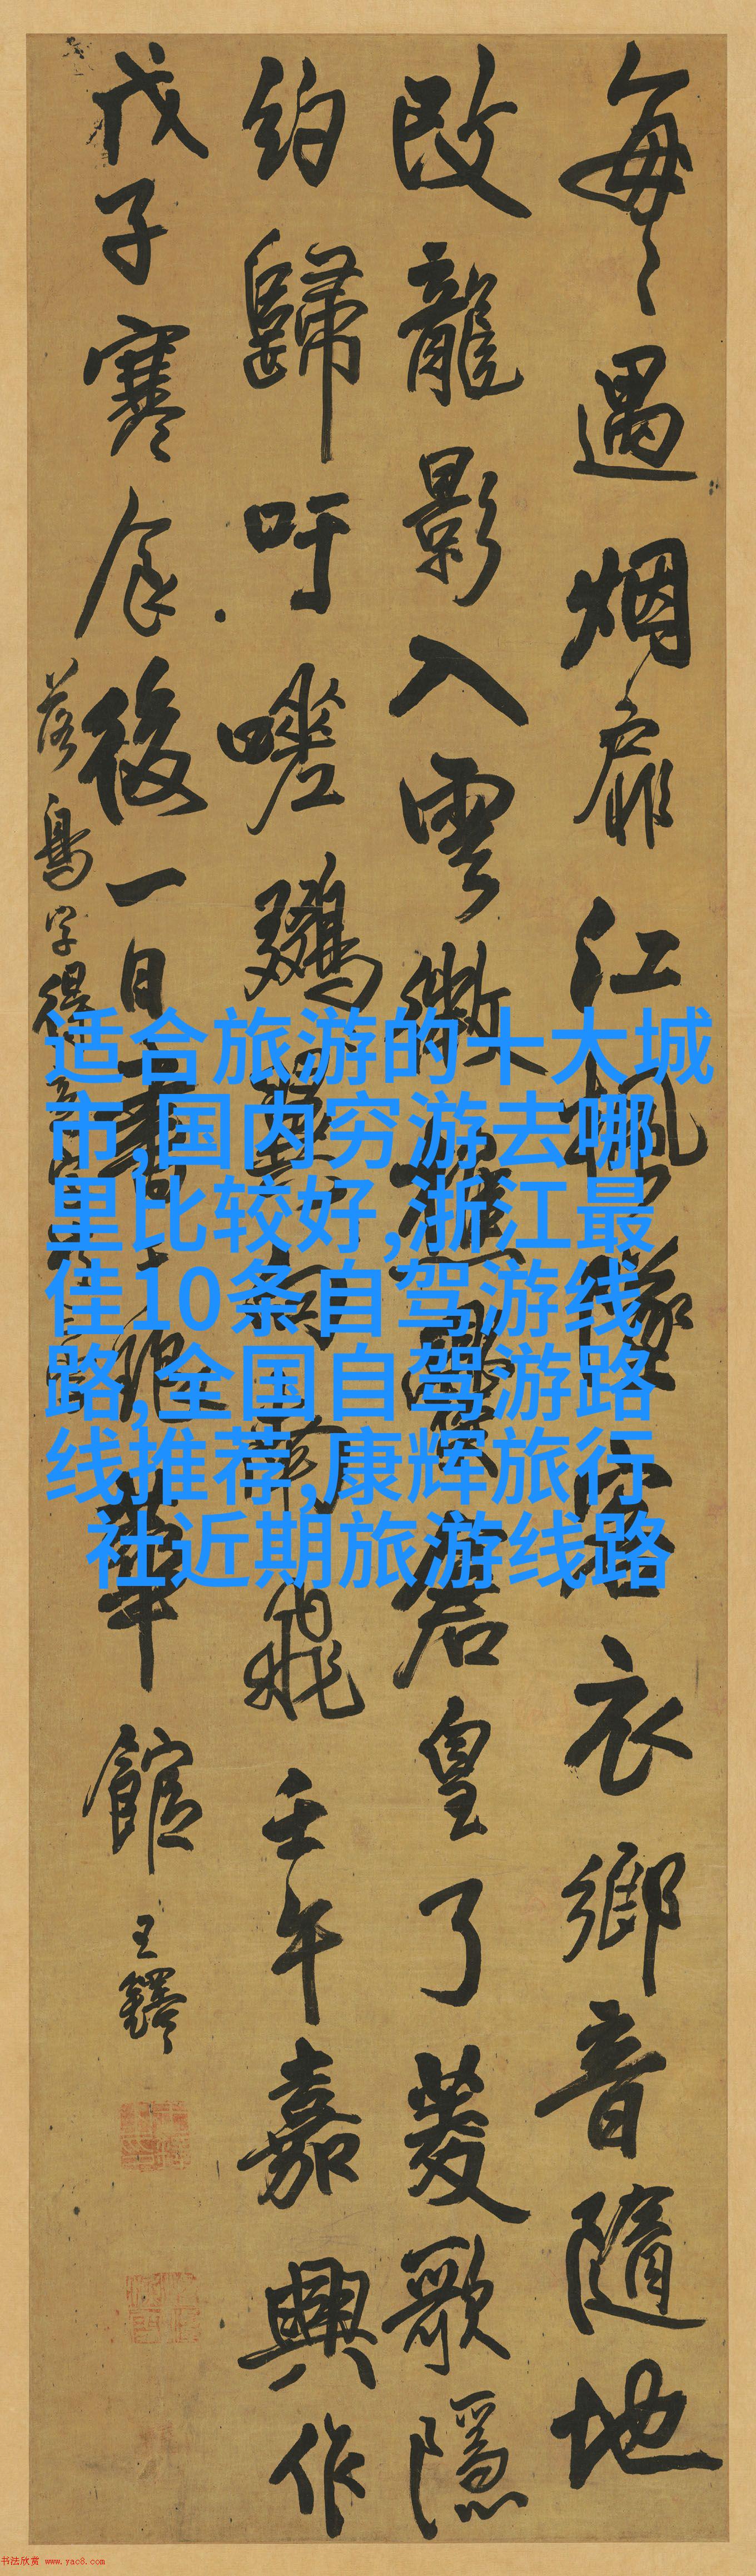 每〻遇烟扉江楓墜衣鄉音隨地
改龍影入雲微蒼皇了菱歌隱
約歸吁嗟何飛壬午嘉興作
戊子寒食後一日書琅華館 王鐸
落鳥字得
适合旅游的十大城
市,国内穷游去哪
里比较好,浙江最
佳10条自驾游线
路,全国自驾游路
线推荐,康辉旅行
社近期旅游线路
书法欣赏 www.yac8.com